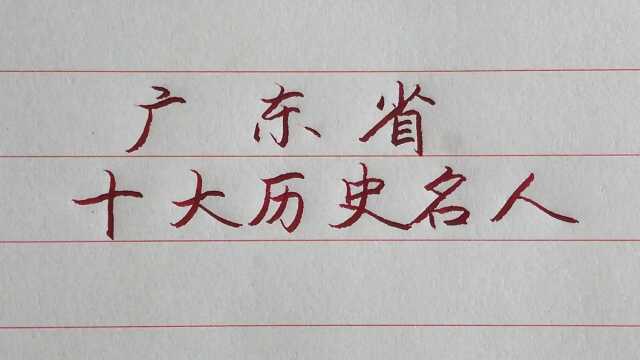 广东省
十大历史名人